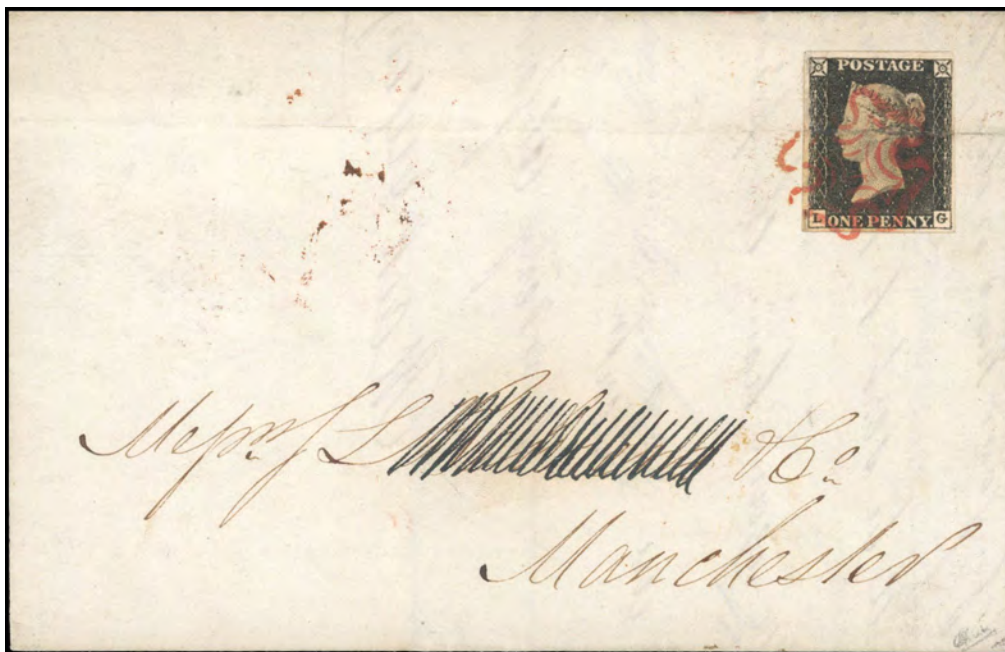 POSTAGE
L ONE PENNY. G
Messrs J L & Co
Manchester